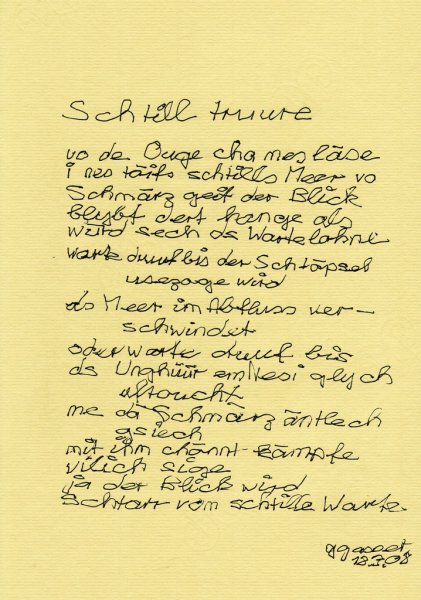 Schtill truure
vo de Ouge cha mes läse
i nes täifs schtills Meer vo
Schmärz geit der Blick
blybt dert hange als
würd sech ds Warte lohne
warte druuf bis der Schtöpsel
usezoge wird
ds Meer im Abfluss ver-
schwindet
oder warte druuf bis
ds Unghüür em Nesi glych
uftoucht
me dä Schmärz äntlech
gsiech
mit ihm chönnt kämpfe
vilich sige
ja der Blick wird
schtarr vom schtille Warte.